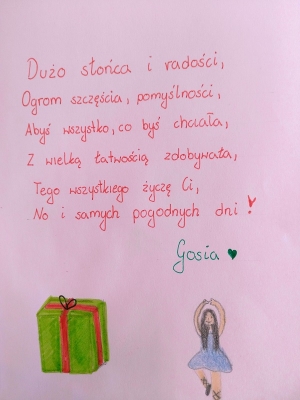 Dużo słońca i radości,
Ogrom szczęścia, pomyślności,
Abyś wszystko, co byś chciała,
Z wielką łatwością zdobywała,
Tego wszystkiego życzę Ci,
No i samych pogodnych dni!
Gosia ♥